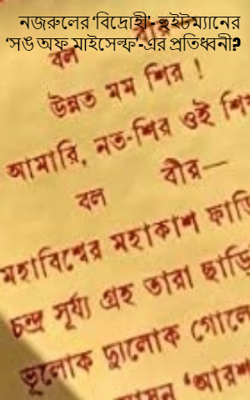 নজরুলের ‘বিদ্রোহী’- হুইটম্যানের
‘সঙ অফ মাইসেল্ফ’-এর প্রতিধ্বনী?
বল বীর—
বল উন্নত মম শির !
আমারি, নত-শির ওই
বল বীর—
বল
মহাবিশ্বের মহাকাশ ফাড়ি
চন্দ্র সূর্য্য গ্রহ তারা ছাড়ি
ভূলোক দ্যুলোক গোলো
‘আরশ